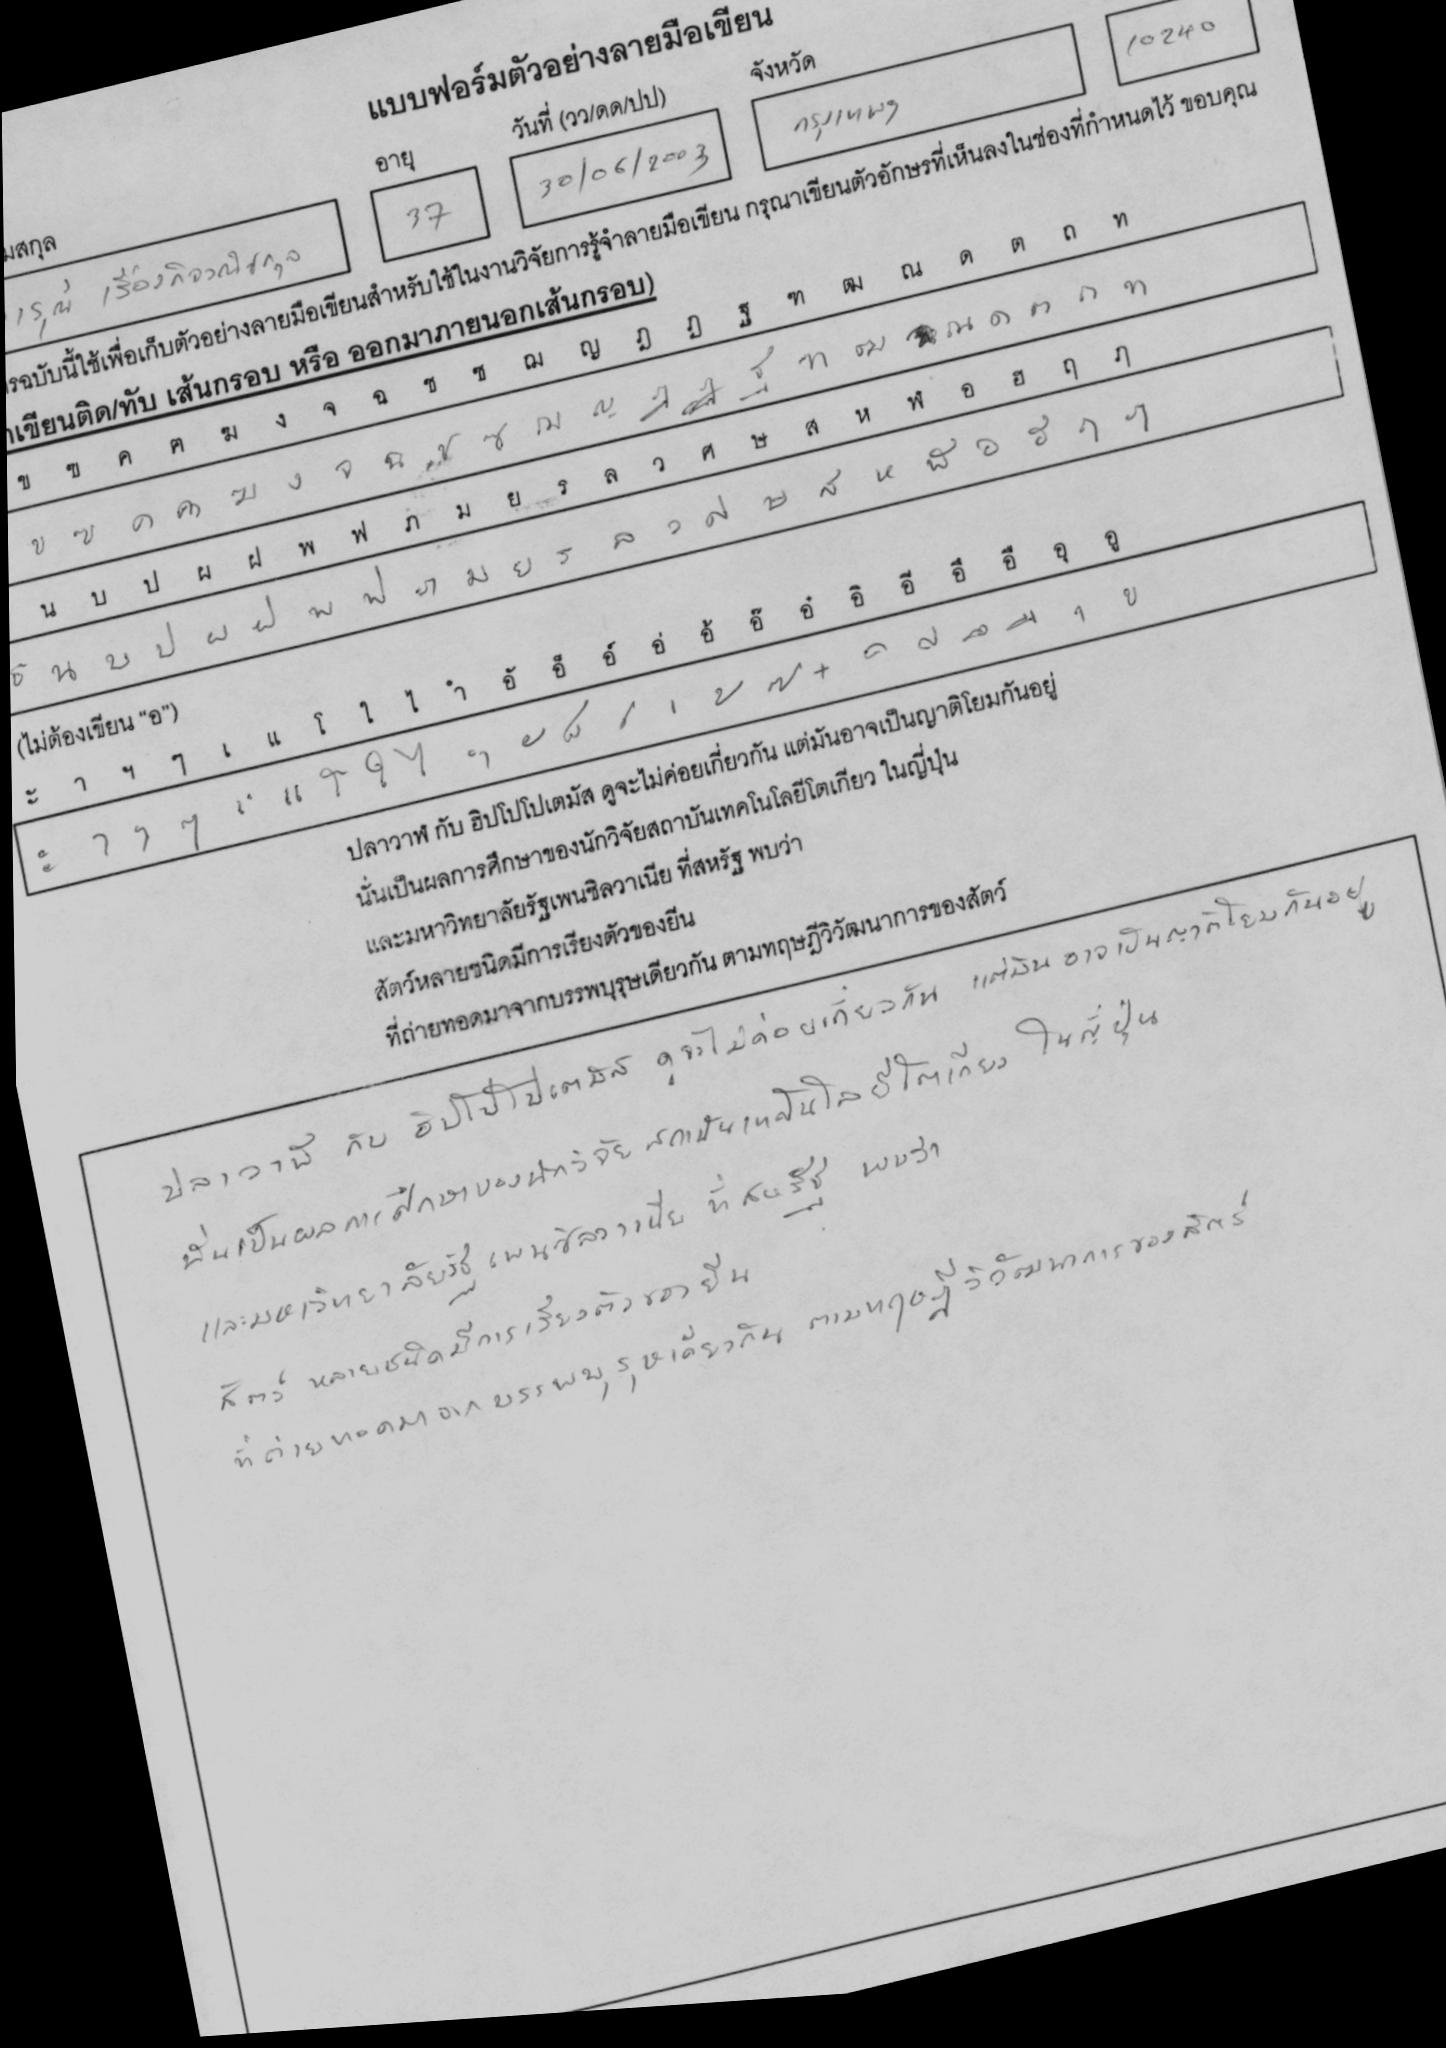 แบบฟอร์มตัวอย่างลายมือเขียน
อายุ วันที่ (วว/ดด/ปป) จังหวัด
37 30/06/2003 กรุงเทพฯ 10240
ใช้เพื่อเก็บตัวอย่างลายมือเขียนสำหรับใช้ในงานวิจัยการรู้จำลายมือเขียน กรุณาเขียนตัวอักษรที่เห็นลงในช่องที่กำหนดไว้ ขอบคุณ
เส้นกรอบ หรือ ออกมาภายนอกเส้นกรอบ)
ข ฃ ค ฅ ฆ ง จ ฉ ช ซ ฌ ญ ฎ ฏ ฐ ฑ ฒ ณ ด ต ถ ท
ข ฃ ค ฅ ฆ ง จ ฉ ช ซ ฌ ญ ฎ ฏ ฐ ฑ ฒ ณ ด ต ถ ท
น บ ป ผ ฝ พ ฟ ภ ม ย ร ล ว ศ ษ ส ห ฬ อ ฮ ฤ ฦ
ธ น บ ป ผ ฝ พ ฟ ภ ม ย ร ล ว ศ ษ ส ห ฬ อ ฮ ฤ ฦ
(ไม่ต้องเขียน "อ")
ะ า ฯ ๆ เ แ โ ใ ไ ำ อั อ็ อ์ อ่ อ้ อ๊ อ๋ อิ อี อึ อื อุ อู
ะ า ฯ ๆ เ แ โ ใ ไ ำ
ปลาวาฬ กับ ฮิปโปโปเตมัส ดูจะไม่ค่อยเกี่ยวกัน แต่มันอาจเป็นญาติโยมกันอยู่
นั่นเป็นผลการศึกษาของนักวิจัยสถาบันเทคโนโลยีโตเกียว ในญี่ปุ่น
และมหาวิทยาลัยรัฐเพนซิลวาเนีย ที่สหรัฐ พบว่า
สัตว์หลายชนิดมีการเรียงตัวของยีน
ที่ถ่ายทอดมาจากบรรพบุรุษเดียวกัน ตามทฤษฎีวิวัฒนาการของสัตว์
ปลาวาฬ กับ ฮิปโปโปเตมัส ดูจะไม่ค่อยเกี่ยวกัน แต่มันอาจเป็นญาติโยมกันอยู่
นั่นเป็นผลการศึกษาของนักวิจัยสถาบันเทคโนโลยีโตเกียว ในญี่ปุ่น
และมหาวิทยาลัยรัฐเพนซิลวาเนีย ที่สหรัฐ พบว่า
สัตว์ หลายชนิดมีการเรียงตัวของยีน
ที่ถ่ายทอดมาจากบรรพบุรุษเดียวกัน ตามทฤษฎีวิวัฒนาการของสัตว์